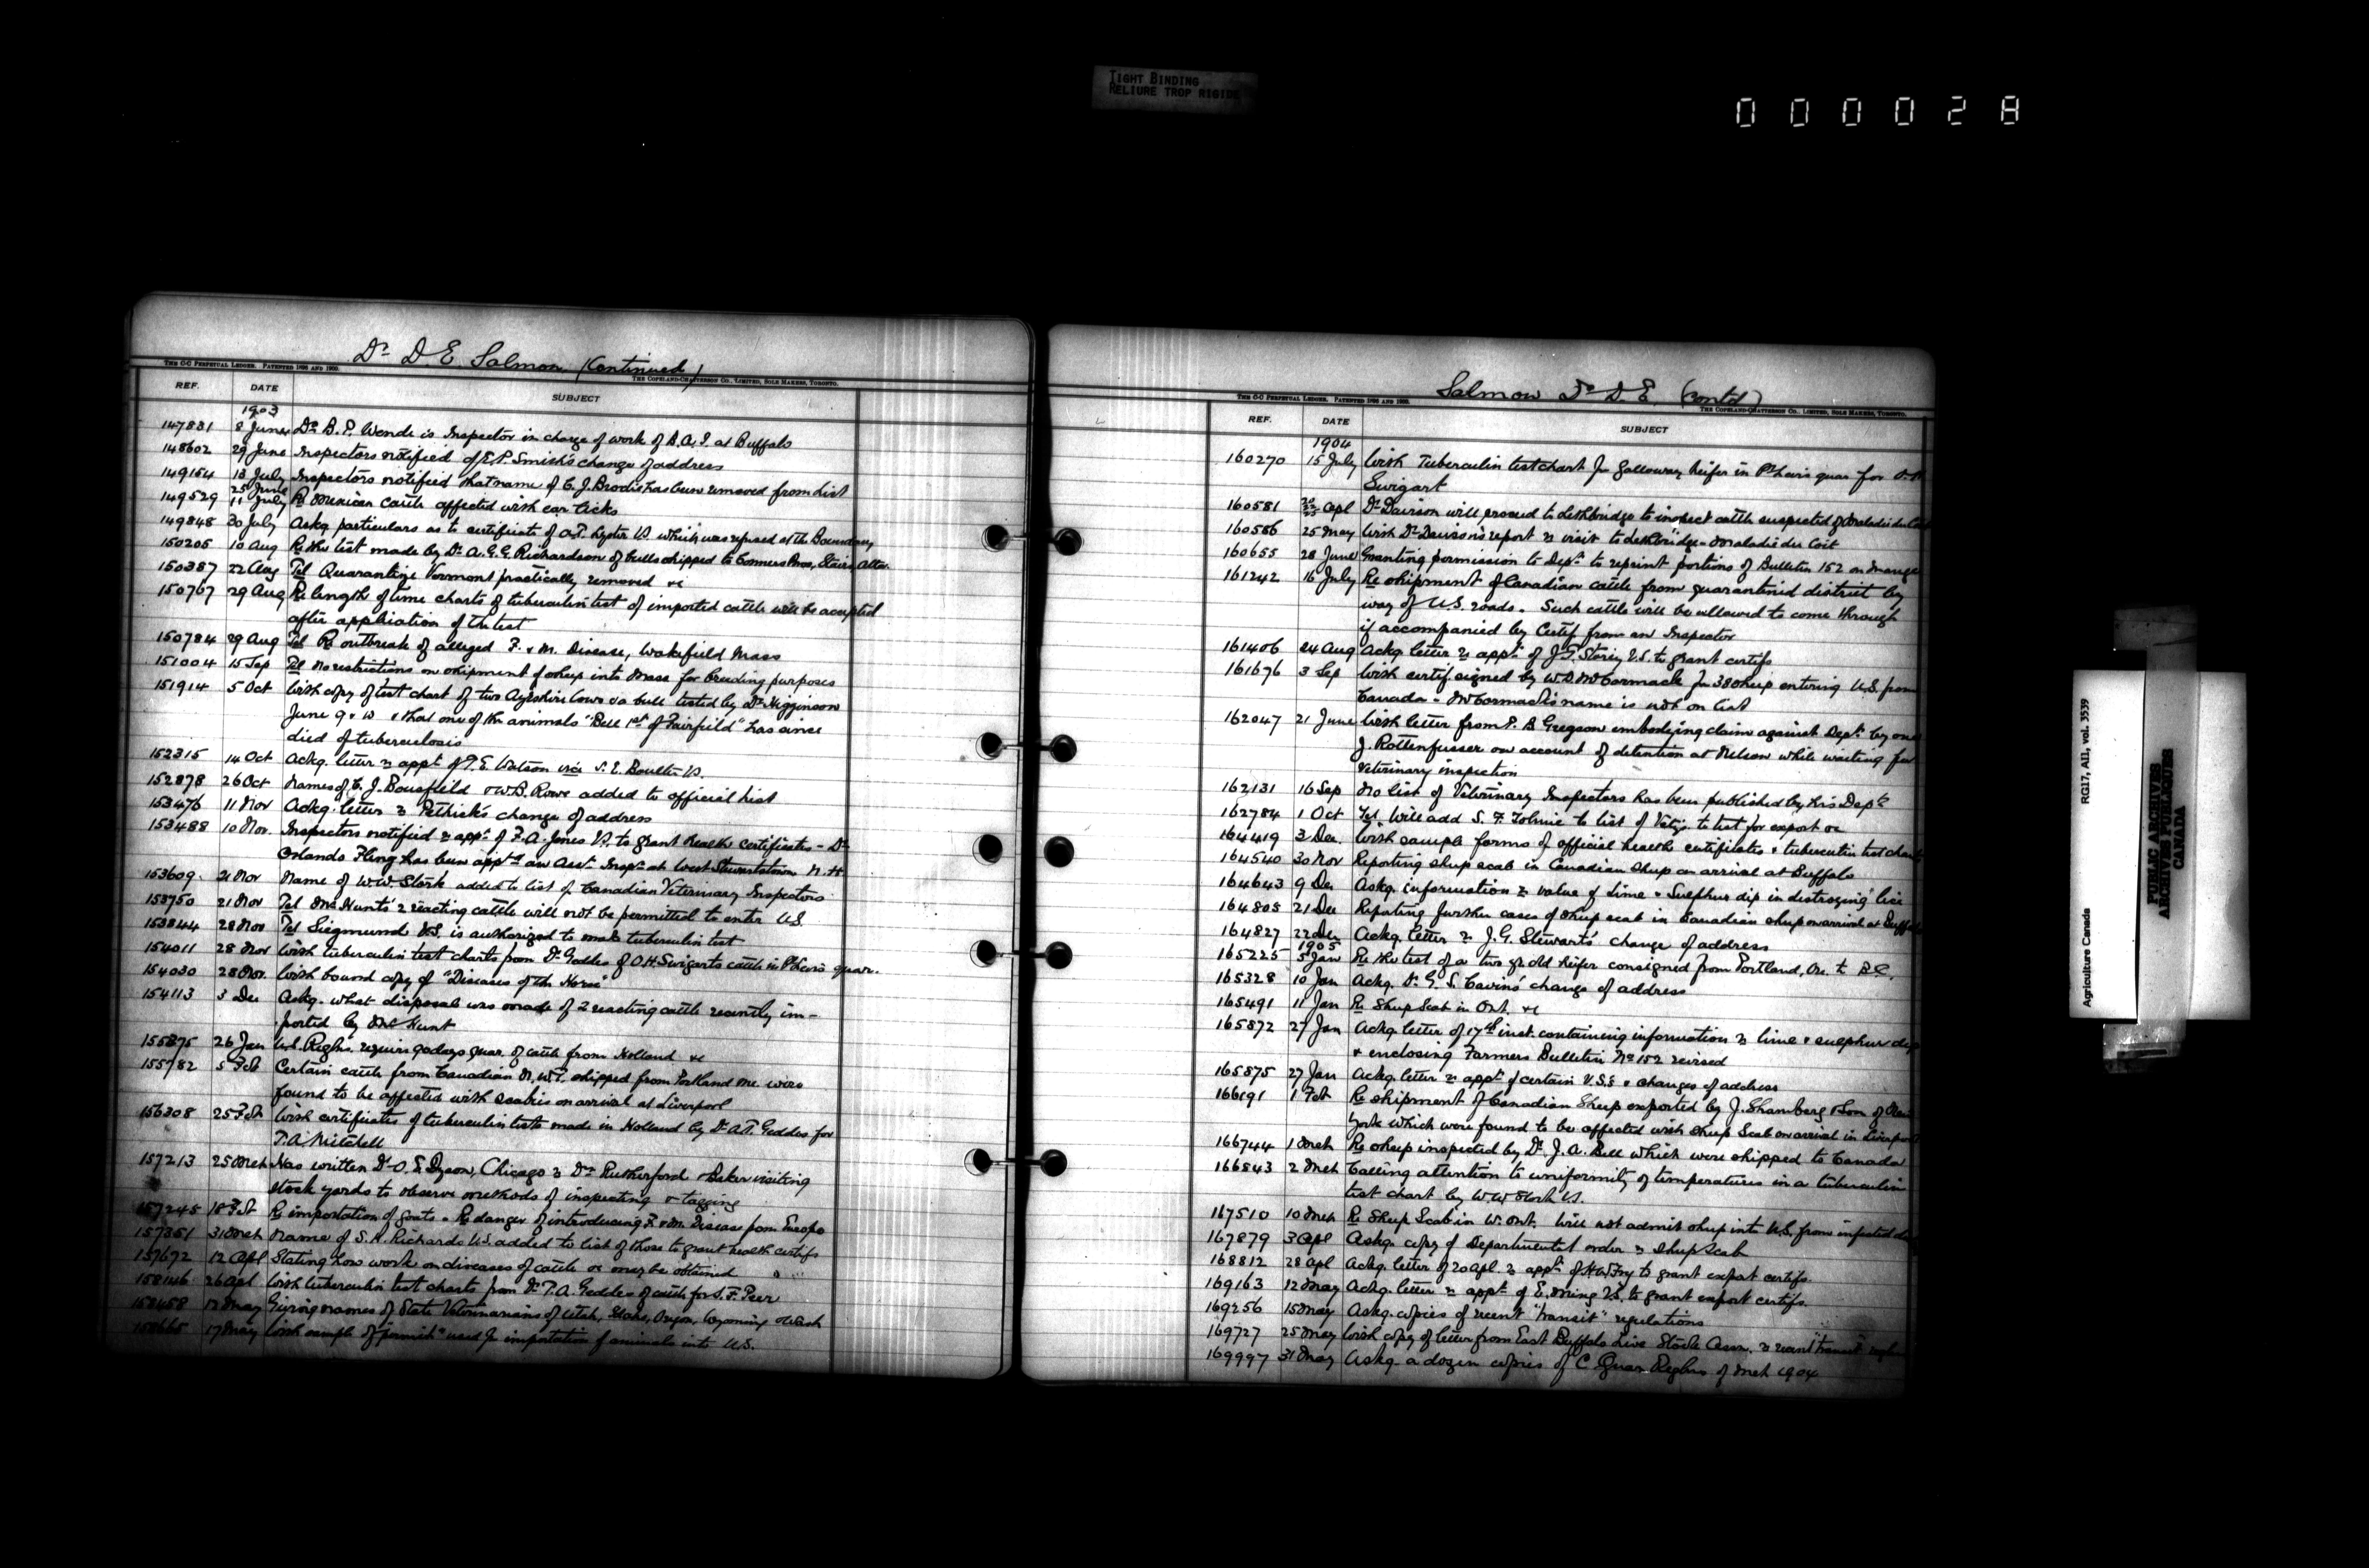 TIGHT BINDING
RELIURE TROP RIGIDE
000028
Dr D E Salmon (Continued)
THE C-C PERPETUAL LEDGER. PATENTED 1896 AND 1900.
THE COPELAND-CHATTERSON CO., LIMITED, SOLE MAKERS, TORONTO.
REF. DATE SUBJECT
1903
147831 8 June Dr B. P. Wende is Inspector in charge of work of B.A.I. at Buffalo
148602 29 June Inspectors notified of E.P. Smith's change of address
149154 13 July Inspectors notified that name of C. J. Brodie has been removed from list
149529 25 June 11 July Re Mexican cattle affected with ear ticks
149848 30 July Askg particulars as to certificate of A.T. Lyster VS which was refused at the Boundary
150205 10 Aug Re the test made by Dr A.G.G. Richardson of bulls shipped to Conners Bros, Stairs, Alta.
150387 22 Aug Tel Quarantine Vermont practically removed &c
150767 29 Aug Re length of time charts of tuberculin test of imported cattle will be accepted
after application of the test
150784 29 Aug Tel Re outbreak of alleged F. & M. Disease, Wakefield Mass
151004 15 Sep Tel No restrictions on shipment of sheep into Mass for breeding purposes
151914 5 Oct With copy of test chart of two Ayrshire Cows & a bull tested by Dr Higginson
June 9 & 10 & that one of the animals "Bell 1st of Fairfield" has since
died of tuberculosis
152315 14 Oct Ackg. letter re appt of T.E. Watson vice S. E. Boulter VS.
152878 26 Oct Names of C. J. Bousfield & W.B. Rowe added to official list
153476 11 Nov Ackg. letter re Pethick's change of address
153488 10 Nov. Inspectors notified re appt. of F.A. Jones VS. to grant health certificates - Dr
Orlando Fling has been apptd an Asst. Inspr at West Stewartstown N.H
153609. 21 Nov Name of W.W. Stork added to list of Canadian Veterinary Inspectors
153750 21 Nov Tel Mr Hunt's 2 reacting cattle will not be permitted to enter U.S.
153844 28 Nov Tel Siegmund V.S. is authorized to make tuberculin test
154011 28 Nov With tuberculin test charts from Dr Geddes of O.H. Swigarts cattle in Pt Levis quar.
154030 28 Nov. With bound copy of "Diseases of the Horse"
154113 3 Dec Askg. what disposal was made of 2 reacting cattle recently im-
ported by Mr Hunt
155875 26 Jan U.S. Reglns. require 90 days quar. of cattle from Holland &c
155782 5 Feb Certain cattle from Canadian N.W.T. shipped from Portland Me. were
found to be affected with scabies on arrival at Liverpool
156308 25 Feb With certificates of tuberculin tests made in Holland by Dr A.T. Geddes for
T.A. Mitchell
157213 25 Mch Has written Dr O. E. Dyson, Chicago re Drs Rutherford & Baker visiting
stock yards to observe methods of inspecting & tagging
157245 18 Feb Re importation of goats. Re danger of introducing F. & M. Disease from Europe
157351 31 Mch Name of S. A. Richards V.S. added to list of those to grant health certifs
157672 12 Apl Stating how work on diseases of cattle &c may be obtained
158146 26 Apl With tuberculin test charts from Dr T.A. Geddes of cattle for S.F. Peer
158458 12 May Giving names of State Veterinarians of Utah, Idaho, Oregon, Wyoming & Wash
158665 17 May With sample of "permit" used for importation of animals into U.S.
Salmon Dr D. E. (contd)
THE C-C PERPETUAL LEDGER. PATENTED 1896 AND 1900.
THE COPELAND-CHATTERSON CO., LIMITED, SOLE MAKERS, TORONTO.
REF. DATE SUBJECT
1904
160270 15 July With Tuberculin test chart for Galloway heifer in Pt Levis quar for O. H
Swigart
160581 Apl Dr Davison will proceed to Lethbridge to inspect cattle suspected of Maladie du Coit
160586 25 May With Dr Davison's report re visit to Lethbridge - Maladie du Coit
160655 28 June Granting permission to Dept to reprint portions of Bulletin 152 on Mange
161242 16 July Re shipment of Canadian cattle from quarantined district by
way of U.S. roads. Such cattle will be allowed to come through
if accompanied by Certif. from an Inspector
161406 24 Aug Ackg letter re appt. of J.T. Storey V.S. to grant certifs
161676 3 Sep With certif. signed by W.D. McCormack for 380 sheep entering U.S. from
Canada - McCormack's name is not on list
162047 21 June With letter from P. B Gregson embodying claim against Dept. by one
J. Rottenfusser on account of detention at Nelson while waiting for
Veterinary inspection
162131 16 Sep No list of Veterinary Inspectors has been published by his Dept.
162784 1 Oct Tel. Will add S. F. Tolmie to list of Vetys to test for export &c
164419 3 Dec. With sample forms of official health certificates & tuberculin test charts
164540 30 Nov Reporting sheep scab in Canadian sheep on arrival at Buffalo
164643 9 Dec Askg. information re value of Lime & Sulphur dip in destroying lice
164805 21 Dec Reporting further cases of sheep scab in Canadian sheep on arrival at Buffalo
164827 22 Dec Ackg. letter re J. G. Stewart's change of address
1905
165225 5 Jan Re the test of a two yr old heifer consigned from Portland, Ore. to B.C.
165328 10 Jan Ackg. Dr G. S. Cavin's change of address
165491 11 Jan Re Sheep Scab in Ont. &c
165872 27 Jan Ackg letter of 17th inst. containing information re lime & sulphur dip
& enclosing Farmers Bulletin No 152 revised
165875 27 Jan Ackg. letter re appt. of certain V.S.s & changes of address
166191 1 Feb Re shipment of Canadian Sheep exported by J. Shamberg & Son of New
York which were found to be affected with Sheep Scab on arrival in Liverpool
166744 1 Mch Re sheep inspected by Dr. J. A. Bell which were shipped to Canada
166843 2 Mch Calling attention to uniformity of temperatures in a tuberculin
test chart by W.W. Stork VS.
167510 10 Mch Re Sheep Scab in W. Ont. Will not admit sheep into U.S. from infected
167879 3 Apl Askg. copy of Departmental order re Sheep Scab
168812 28 Apl Ackg. letter of 20 Apl. re appt. of H.W. Fry to grant export certifs.
169163 12 May Ackg. letter re appt. of E. Ming V.S. to grant export certifs.
169256 15 May Askg. copies of recent "transit" regulations
169727 25 May With copy of letter from East Buffalo Live Stock Assn. re recent "transit"
169997 31 May Askg. a dozen copies of C. Quar Reglns of Mch 1904
Agriculture Canada RG17, AII, vol. 3539
PUBLIC ARCHIVES
ARCHIVES PUBLIQUES
CANADA